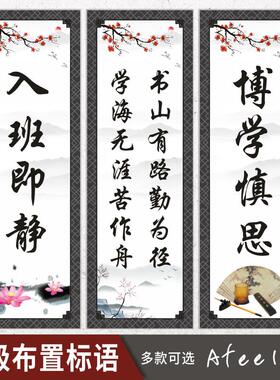 入班即静
书山有路勤为径
学海无涯苦作舟
博学慎思
级布置标语
多款可选
Afeel